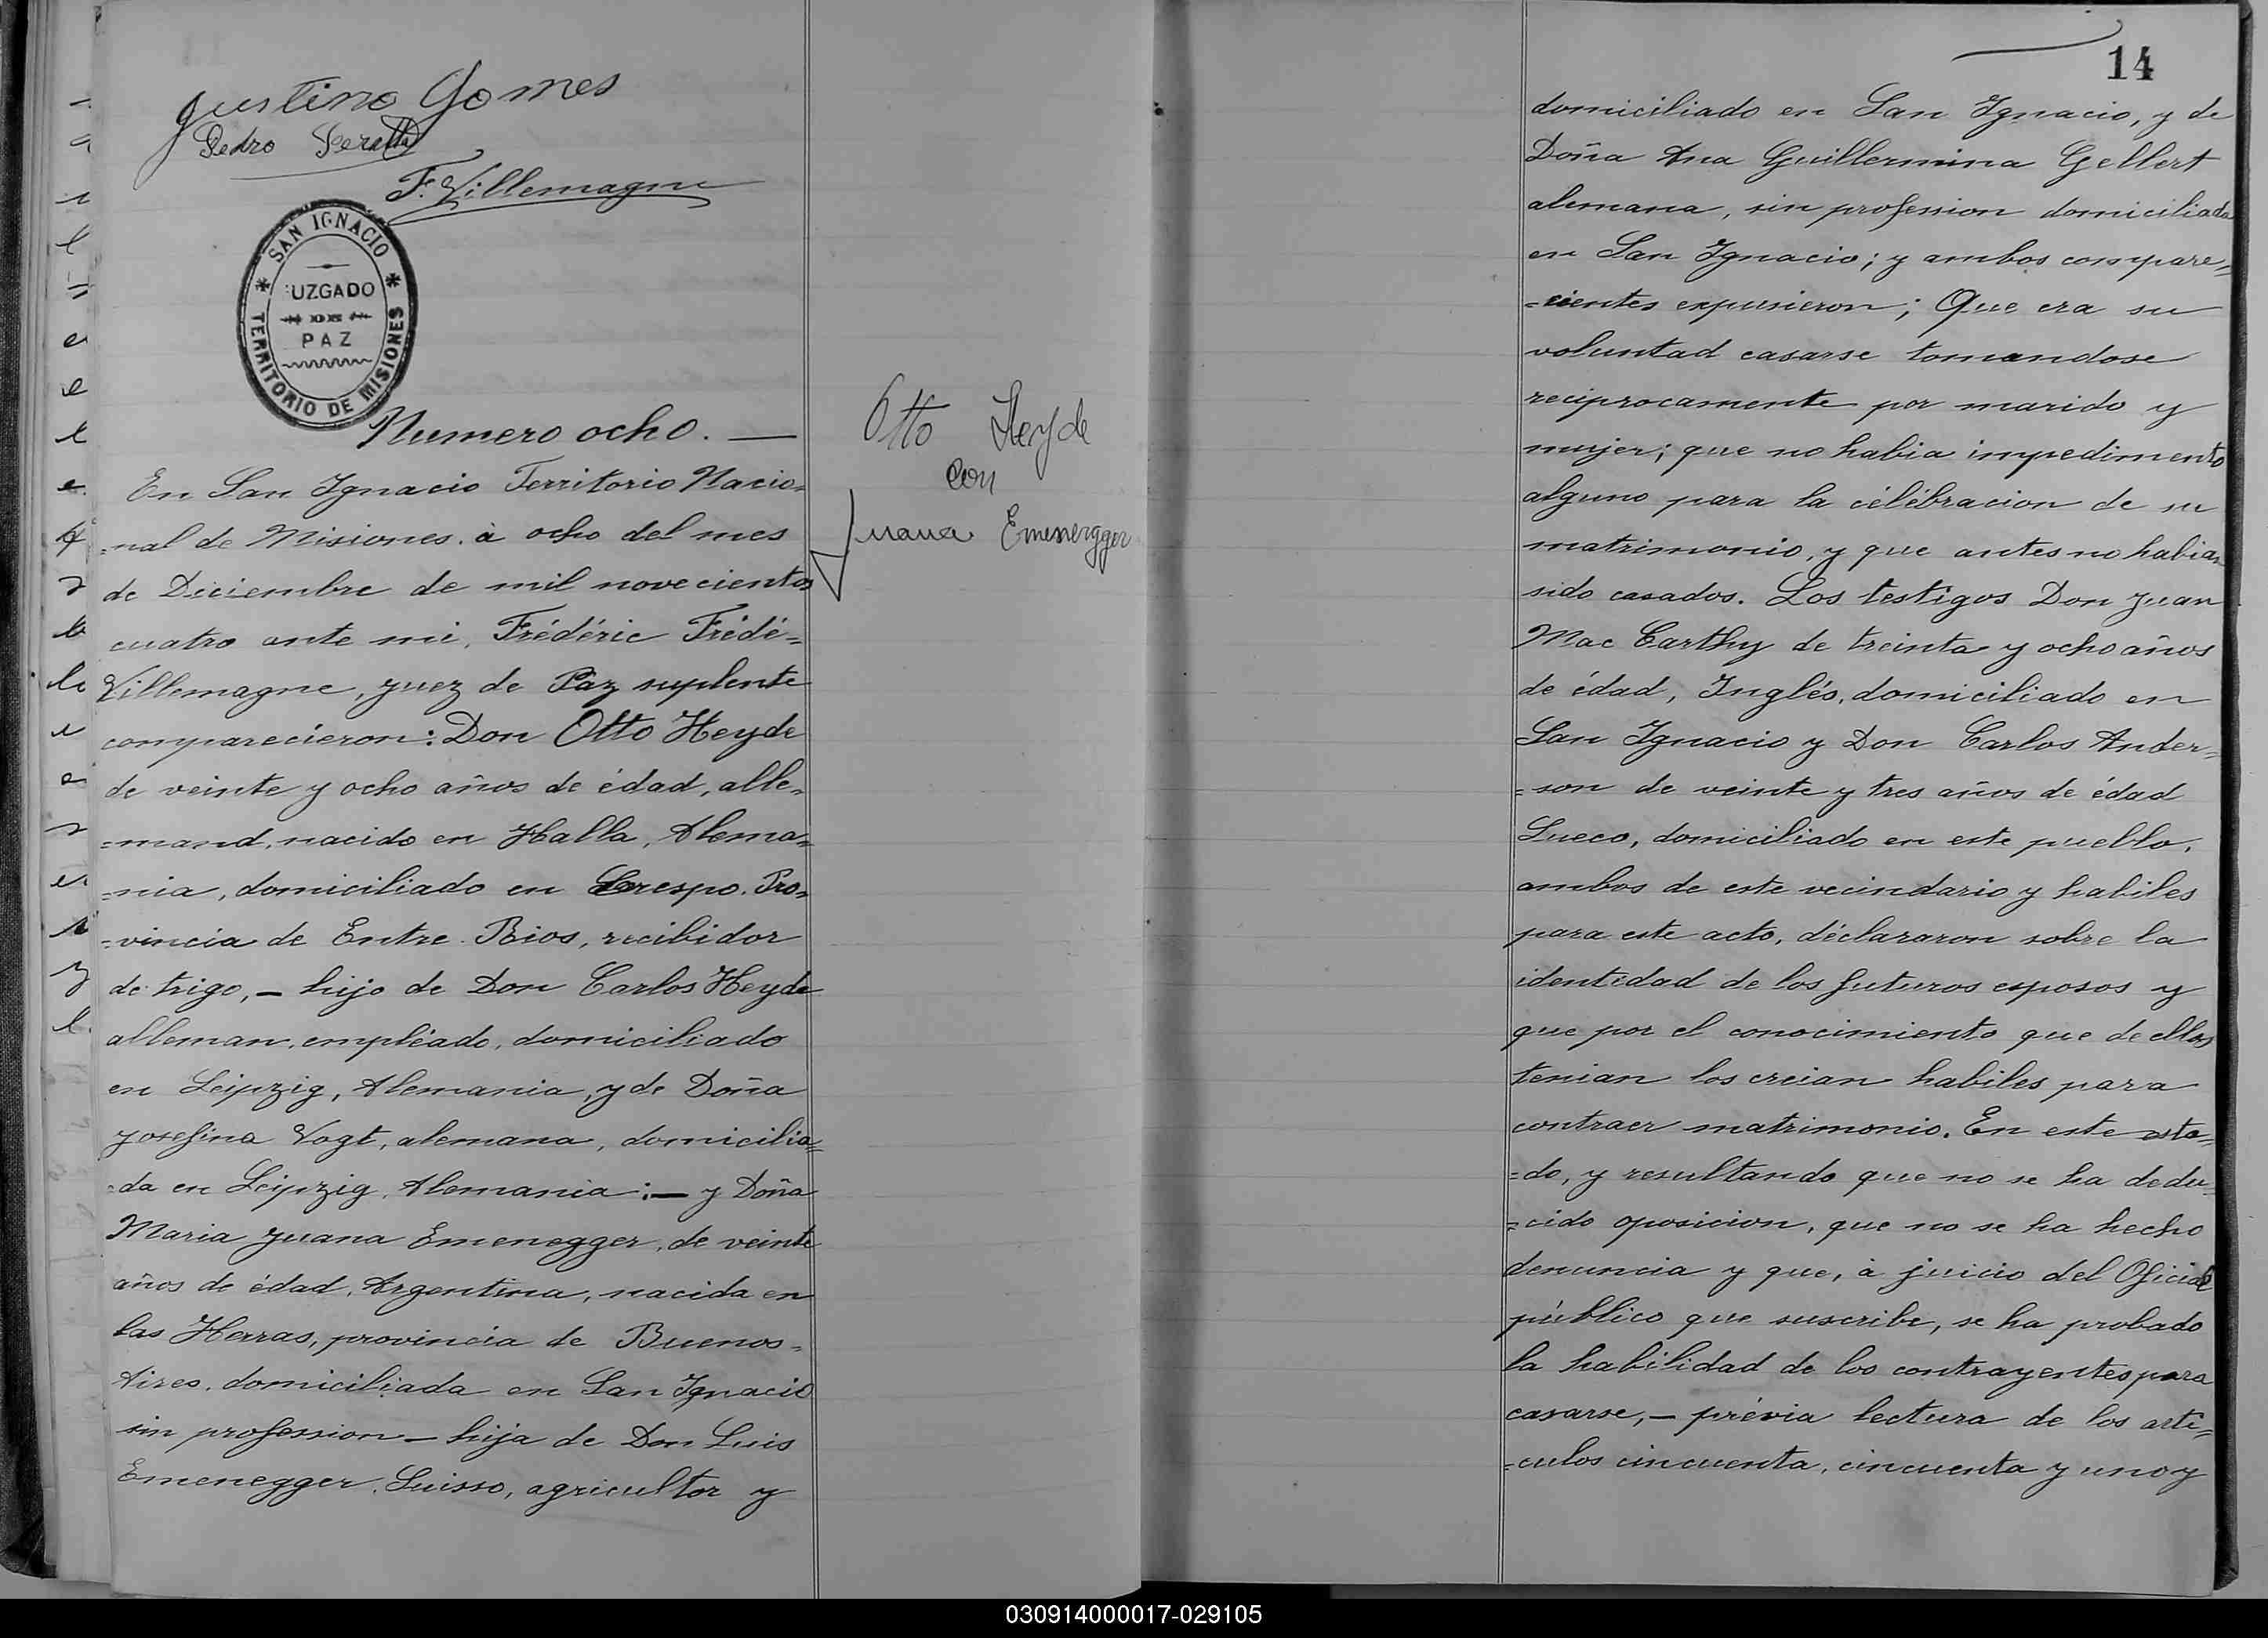 Justino Gomes
Pedro
F. Villemagne
SAN IGNACIO
UZGADO
DE
PAZ
TERRITORIO DE MISIONES
Numero ocho. —
En San Ignacio Territorio Nacio=
=nal de Misiones. à ocho del mes
de Diciembre de mil novecientos
cuatro ante mi, Frédéric Frédé=
Villemagne, juez de Paz suplente
comparecieron: Don Otto Heyde
de veinte y ocho años de édad, alle=
=mand, nacido en Halla, Alema=
=nia, domiciliado en Crespo. Pro=
=vincia de Entre Rios, recibidor
de trigo, — hijo de Don Carlos Heyde
alleman, empléado, domiciliado
en Leipzig, Alemania, y de Doña
Josefina Vogt, alemana, domicilia=
=da en Leipzig, Alemania: — y Doña
Maria Juana Emenegger, de veinte
años de édad, Argentina, nacida en
las Herras, provincia de Buenos=
Aires, domiciliada en San Ignacio
sin profession — hija de Don Luis
Emenegger, Suisso, agricultor y
Otto Heyde
con
Juana Emenergger
14
domiciliado en San Ignacio, y de
Doña Ana Guillermina Gellert
alemana, sin profession domiciliada
en San Ignacio; y ambos compare=
=cientes expusieron; Que era su
voluntad casarse tomandose
reciprocamente por marido y
mujer; que no habia impedimento
alguno para la célébracion de su
matrimonio, y que antes no habian
sido casados. Los testigos Don Juan
Mac Carthy de treinta y ocho años
de édad, Inglés, domiciliado en
San Ignacio y Don Carlos Ander=
=son de veinte y tres años de édad
Sueco, domiciliado en este pueblo,
ambos de este vecindario y habiles
para este acto, déclararon sobre la
identidad de los futuros esposos y
que por el conocimiento que de ellos
tenian los creian habiles para
contraer matrimonio. En este esta=
=do, y resultando que no se ha dedu=
=cido oposicion, que no se ha hecho
denuncia y que, à juicio del Oficial
público que suscribe, se ha probado
la habilidad de los contrayentes para
casarse, — prévia lectura de los arti=
=culos cincuenta, cincuenta y uno y
030914000017-029105